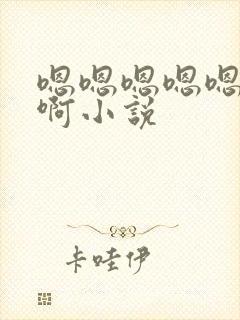 嗯嗯嗯嗯嗯
啊小说
卡哇伊